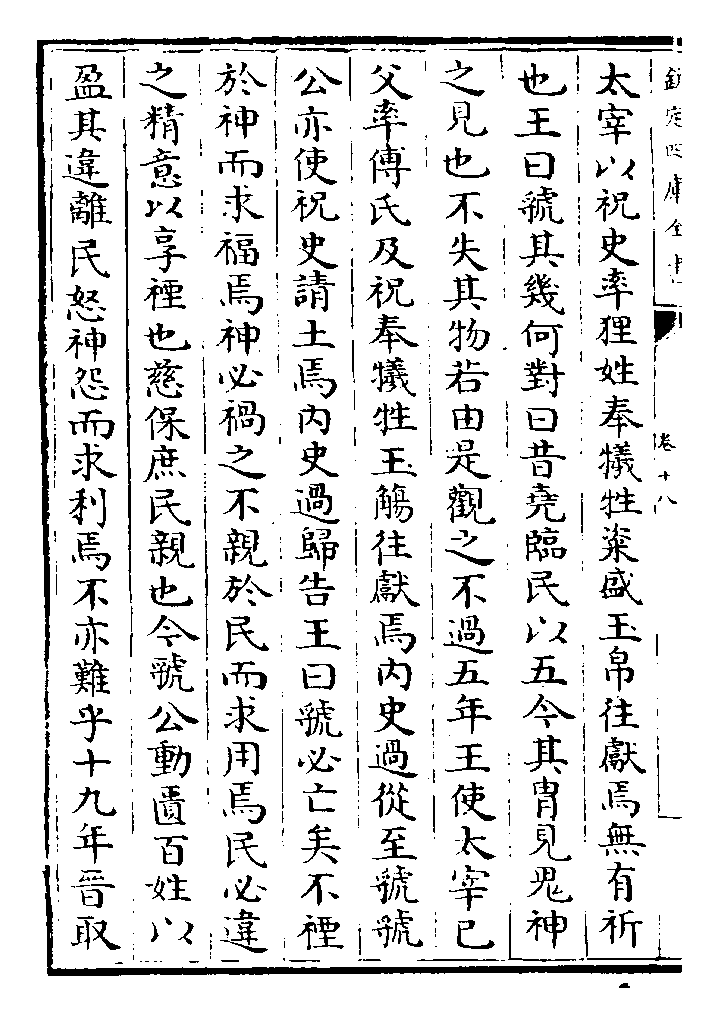 欽定四庫全書
卷十八
太宰以祝史率狸姓奉犧牲粢盛玉帛往獻焉無有祈
也王曰虢其幾何對曰昔堯臨民以五今其胄見鬼神
之見也不失其物若由是觀之不過五年王使太宰已
父率傅氏及祝奉犧牲玉觴往獻焉内史過從至虢虢
公亦使祝史請土焉内史過歸告王曰虢必亡矣不禋
於神而求福焉神必禍之不親於民而求用焉民必違
之精意以享禋也慈保庶民親也今虢公動匱百姓以
盈其違離民怒神怨而求利焉不亦難乎十九年晉取